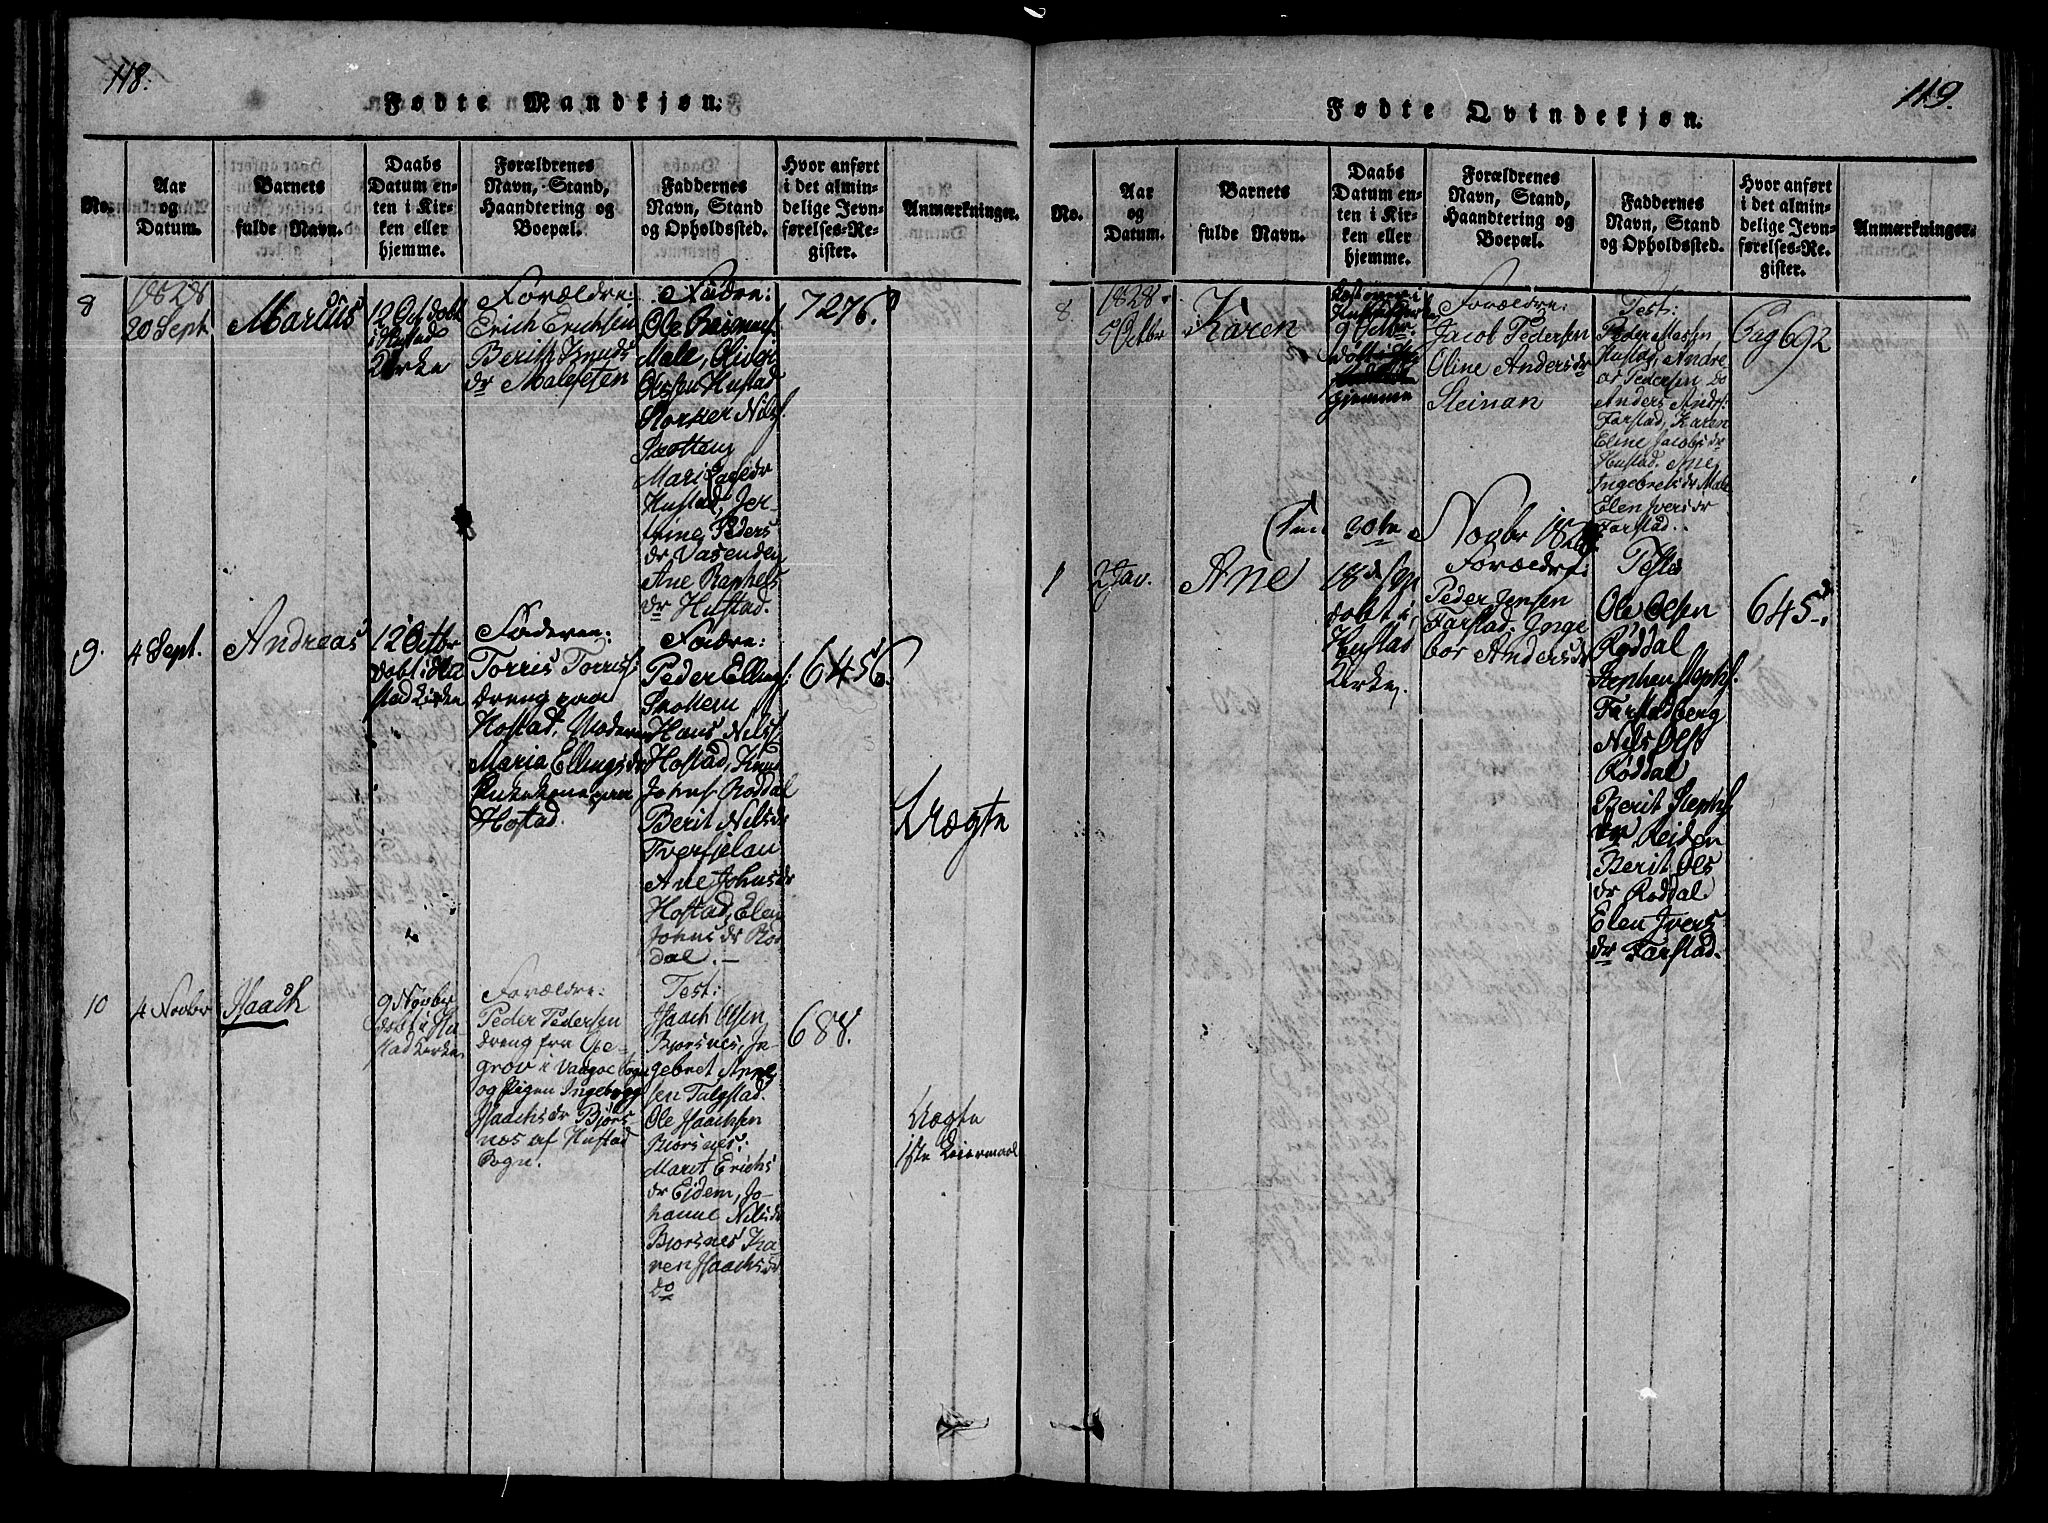 118.
Fødte Mandkjøn.
No.
Aar
og
Datum.
Barnets
fulde Navn.
Daabs
Datum en-
ten i Kir-
ken eller
hjemme.
Forældrenes
Navn, Stand,
Haandtering og
Boepæl.
Faddernes
Navn, Stand
og Opholdssted.
Hvor anført
i det almin-
delige Jevn-
førelses-Re-
gister.
Anmærkninger.
8
1828
20 Sept.
Marcus
12 Oct døbt
i Hustad
Kirke
Forældre:
Erich Erichsen
Berith Knuds
dr Maleseten
Fadre:
Ole Rasmus.
Male, Oliver
Olssen Hustad
Storker Nils.
Skottem
Mari
Hustad, Jer-
trine Peders
dr Vasenden
Ane Raphels
dr Hustad.
7276.
9.
4 Sept.
Andreas
12 Octbr
døbt i Hu
stad Kirke
Faderen:
Torris Torris:
dreng paa
Hostad. Moderen
Maria Ellingsdr
Enkekone paa
Hostad.
Fadre:
Peder Ellings:
Skottem
Hans Nils.
Hostad, Knud
Johns. Roddal
Berit Nilsdr
Tverfjelan
Ane Johnsdr
Hostad, Elen
Johnsdr Rod
dal.
6456.
Uægte
10
4 Novbr
Isaach
9 Novbr
døbt i Hu
stad Kirke
Forældre:
Peder Pedersen
dreng fra
grov i Vaagøe Sogn
og Pigen Ingeborg
Isaachsdr Bjørs
nes af Hustad
Sogn.
Test:
Isaach Olsen
Bjorsnes, In
gebret Arne
sen Talgstad.
Ole Isaachsen
Bjorsnes.
Marit Erichs
dr Eidem, Jo-
hanne Nilsdr
Bjorsnes Ka
ren Isaachsdr
do
688.
Uægte
1ste Leiermaal
119.
Fødte Qvindekjøn.
No.
Aar
og
Datum.
Barnets
fulde Navn.
Daabs
Datum en-
ten i Kir-
ken eller
hjemme.
Forældrenes
Navn, Stand,
Haandtering og
Boepæl.
Faddernes
Navn, Stand
og Opholdssted.
Hvor anført
i det almin-
delige Jevn-
førelses-Re-
gister.
Anmærkninger.
8.
1828.
5 Octbr
Karen
9 Octbr.
hjemme
Forældre:
Jacob Pedersen
Oline Andersdr
Steinan
Test:
Peder
Hustad, Andre
as Pedersen do
Anders Ands:
Farstad, Karen
Eline Jacobsdr
Hustad. Ane
Ingebretsdr Male
Elen Iversdr
Farstad.
Pag 692
30te Novbr 1828
1
2 Jav.
Ane
18de
døbt i
Hustad
Kirke.
Forældre:
Peder Jensen
Farstad. Inge
bor Andersdr
Test:
Ole Olsen
Røddal
Stephen Steph.
Farstadberg
Nils Ols.
Røddal
Berit Steph.
dr Reiden
Berit Ols
dr Roddal
Elen Ivers
dr Farstad.
645.